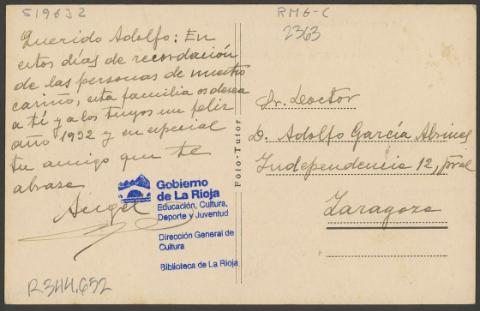 519632
RMG-C
2363
Querido Adolfo: En
estos días de recordación
de las personas de nuestro
cariño, esta familia os desea
a tí y a los tuyos un feliz
año 1932 y en especial
tu amigo que te
abraza
Angel
Foto-Tutor
Sr. Doctor
D. Adolfo García
Independencia 12, pral
Zaragoza
Gobierno
de La Rioja
Educación, Cultura,
Deporte y Juventud
Dirección General de
Cultura
Biblioteca de La Rioja
R.344.652